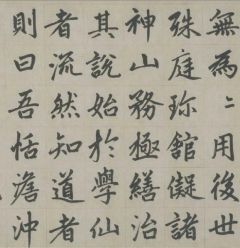 無為〻用後世
殊庭珎館儗諸
神山務極繕治
其說始於學仙
者流然知道者
則曰吾恬澹沖